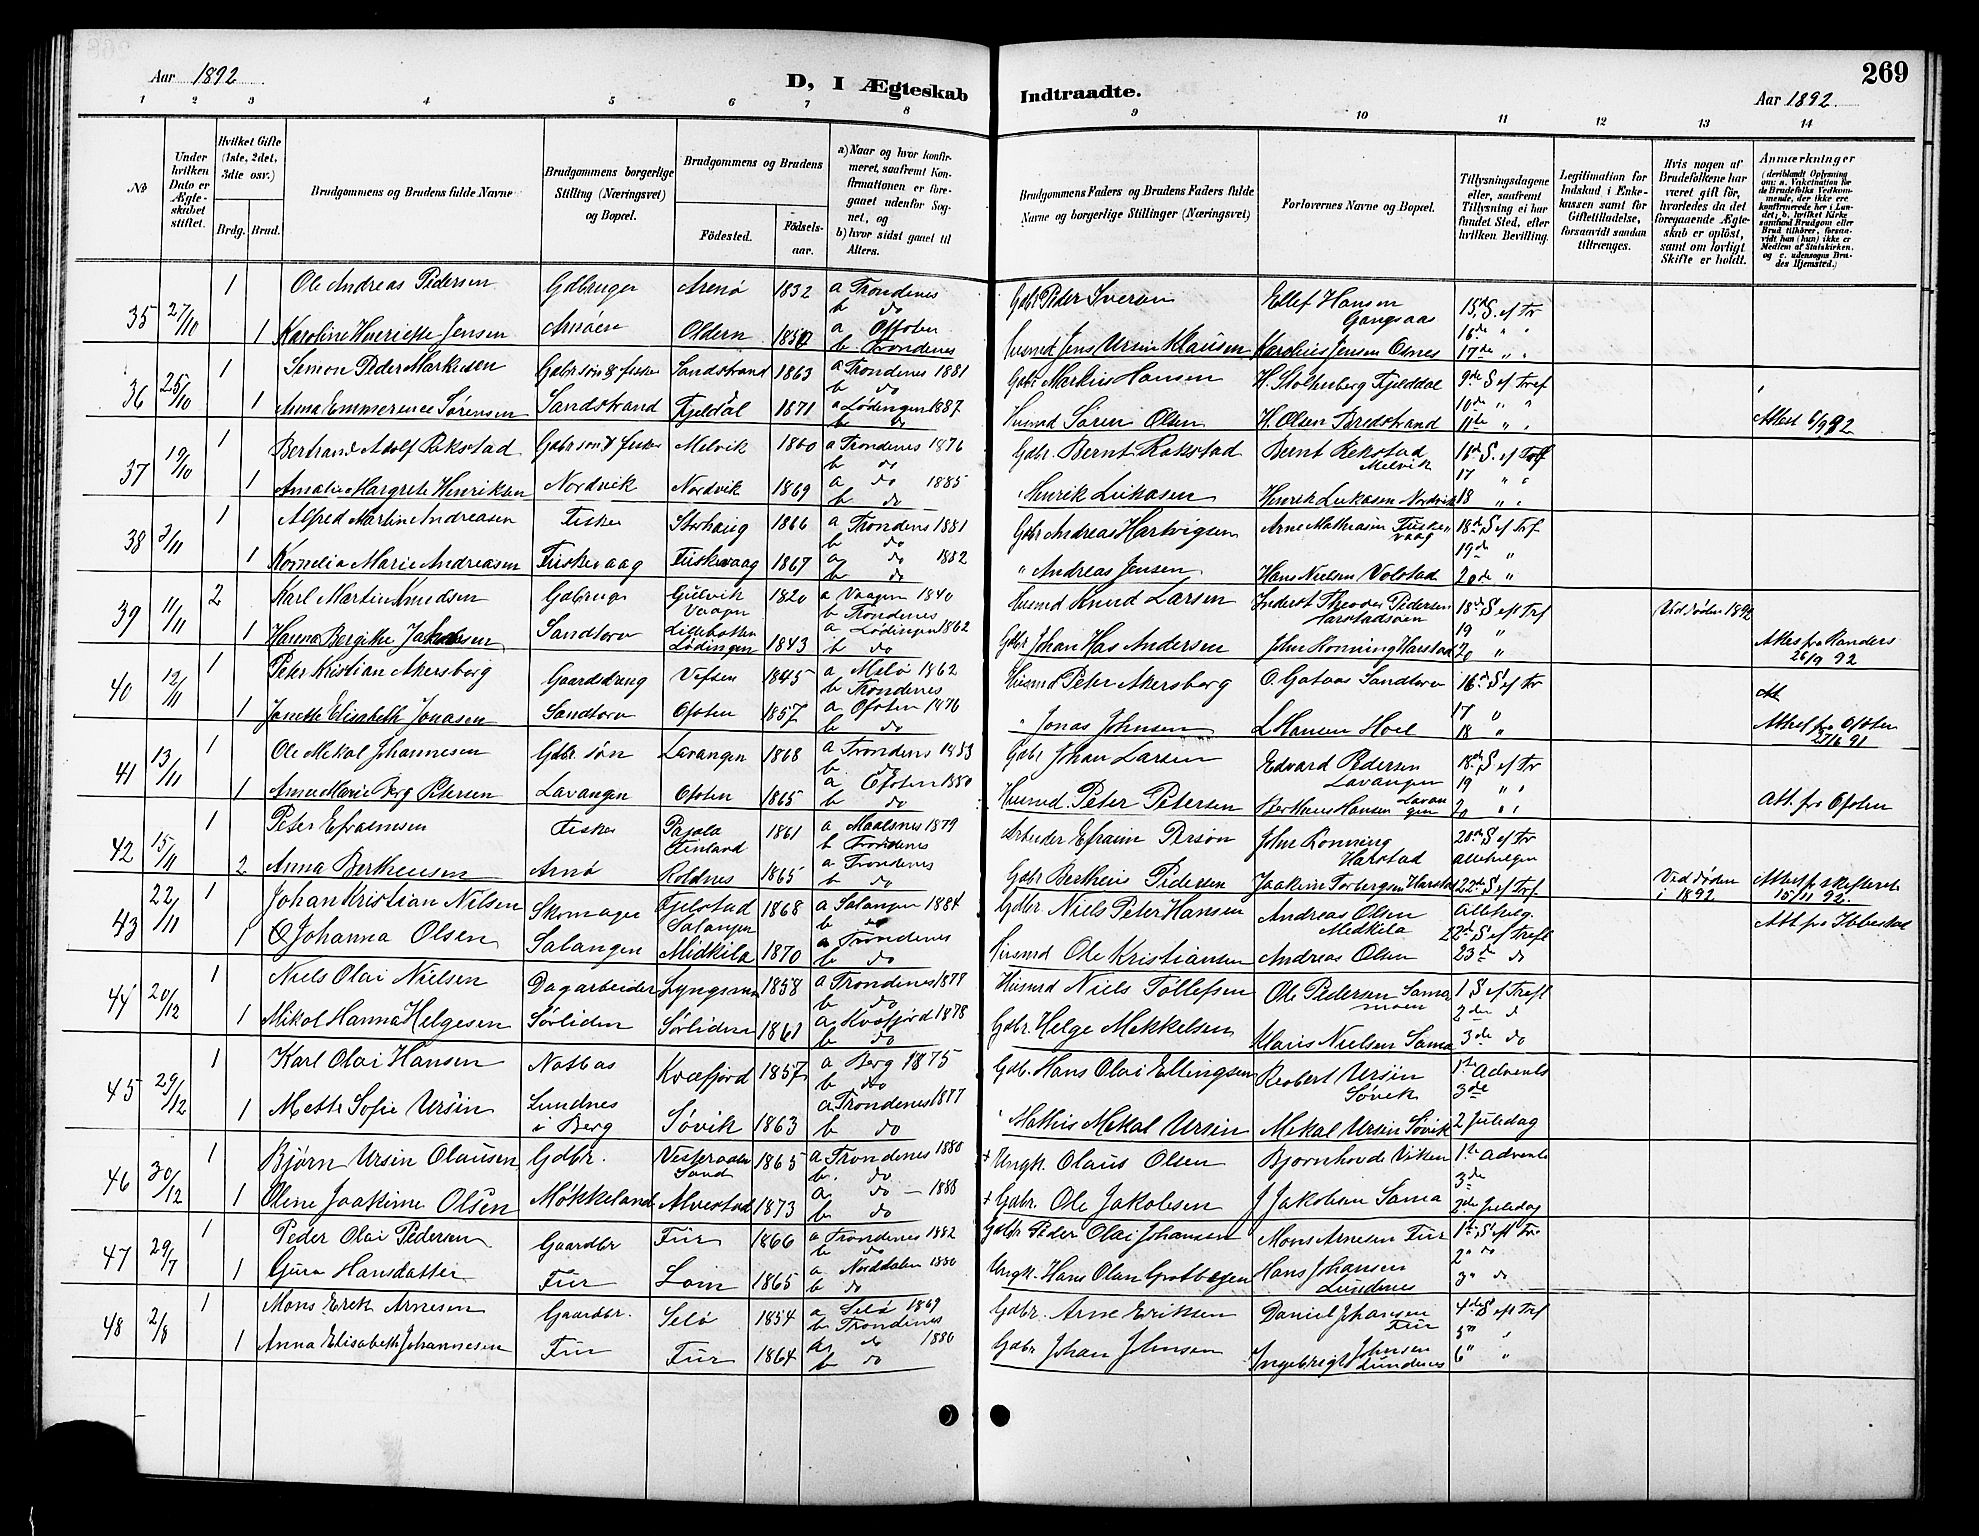 Aar 1892
D, I Ægteskab Indtraadte.
Aar 1892.
269
1 2 3 4 5 6 7 8 9 10 11 12 13 14
No
Under hvilken Dato er Ægteskabet stiftet.
Hvilket Gifte (1ste, 2det, 3die osv.)
Brdg. Brud.
Brudgommens og Brudens fulde Navne
Brudgommens borgerlige Stilling (Næringsvei) og Bopæl.
Brudgommens og Brudens
Fødested.
Fødselsaar.
a) Naar og hvor konfirmeret, saafremt Konfirmationen er foregaaet udenfor Sognet, og
b) hvor sidst gaaet til Alters.
Brudgommens Faders og Brudens Faders fulde Navne og borgerlige Stillinger (Næringsvei)
Forlovernes Navne og Bopæl.
Tillysningsdagene eller, saafremt Tillysning ei har fundet Sted, efter hvilken Bevilling.
Legitimation for Indskud i Enkekassen samt for Giftetilladelse, forsaavidt saadan tiltrænges.
Hvis nogen af Brudefolkene har været gift før, hvorledes da det foregaaende Ægteskab er opløst, samt om lovligt Skifte er holdt.
Anmærkninger (deriblandt Oplysning om: a. Vakcination for de Brudefolks Vedkommende, der ikke ere konfirmerede her i Landet; b. hvilket Kirkesamfund Brudgom eller Brud tilhører, forsaavidt han (hun) ikke er Medlem af Statskirken, og c. udensogns Brudes Hjemsted.)
35 27/10 1 Ole Andreas Pedersen Gdbruger Arnø 1832 a Trondenes b do Gdbr Peder Iversen Ellef Hansen Gangsaas 15de S. ef Tr
1 Karoline Henriette Jensen Arnøen Oldern a Ofoten b. Trondenes Husmd Jens Ursin Klausen Karolius Jensen Osnes 16de " " 17de " "
36 25/10 1 Simon Peder Markusen Gdbr søn & fisker Sandstrand 1863 a Trondenes 1881 b do Gdbr Markus Hansen H. Stoltenberg Fjelddal 9de S ef Tref
1 Anna Emmerence Sørensen Sandstrand Fjeldal 1871 a Lødingen 1887 b do Husmd Søren Olsen H. Olsen Bredstrand 10de " " 11te " " Attest 6/9 92
37 19/10 1 Bertrand Adolf Rekstad Gdbr søn & fisker Melvik 1860 a Trondenes 1876 b do Gdbr. Bernt Rekstad Bernt Rekstad Melvik 16de S. ef Tref
1 Amalie Margrete Henriksen Nordvik Nordvik 1869 a do 1885 b do " Henrik Lukasen Henrik Lukasen Nordvik 17 " " 18 " "
38 3/11 1 Alfred Martin Andreasen Fisker Storhaug 1866 a Trondenes 1881 b do Gdbr Andreas Hartvigsen Arne Mathiasen Fuskevaag 18de S ef Tref
1 Kornelia Marie Andreasen Fuskevaag Fuskevaag 1867 a do 1882 b do " Andreas Jensen Hans Nielsen Volstad 19de " 20de "
39 11/11 2 Karl Martin Knudsen Gdbruger Gulvik Vaagen 1820 a Vaagen 1840 b Trondenes Husmd Knud Larsen Inderst Theodor Pedersen Harstadsøen 18de S eft Tref Ved Døden 1892
1 Hanna Bergitte Jakobsen Sandtorv Lillebotten Lødingen 1843 a Lødingen 1862 b do Gdbr Johan Has Andersen John Rønning Harstad 19 " 20 " Attes fra Randers 26/9 92
40 12/11 1 Peter Kristian Akersborg Gaardsdreng Vefsen 1845 a Melø 1862 b Trondenes Husmd Peter Akersborg O. Gataas Sandtorv 16de S ef Tr Att
1 Janette Elisabeth Jonasen Sandtorv Ofoten 1857 a Ofoten 1876 b do " Jonas Johnsen L Hansen Hoel 17 " 18 " Attest fra Ofoten 27/6 91
41 13/11 1 Ole Mekal Johannesen Gdbr. søn Lavangen 1868 a Trondens 1883 b do Gdbr Johan Larsen Edvard Pedersen Lavangen 18de S ef Tr
1 Anne Marie Berg Petersen Lavangen Ofoten 1865 a Ofoten 1880 b do Husmd Peter Petersen Bertheus Hansen Lavangen 19 " " 20 " " Att. fra Ofoten
42 15/11 1 Peter Efraimsen Fisker Pajala Finland 1861 a Maalsnes 1879 b Trondenes Arbeider Efraim Persøn John Rønning Harstad 20de S ef Tr allehelgen
2 Anna Bertheusen Arnø Roldnes 1865 a Trondenes b do Gdbr Bertheus Pedersen Joakim Torbergsen Harstad 22de S ef Tref Ved Døden i 1892. Attest f. skifteret 15/11 92.
43 22/11 1 Johan Kristian Nilsen Skomager Fjelstad Salangen 1868 a Salangen 1884 b do Gdbr Niels Peter Hansen Andreas Olsen Midkila Allehelg. 22de S ef Trefl Att. fra Ibbestad
1 Johanna Olsen Salangen Midkila 1870 a Trondenes b do Husmd Ole Kristiansen Andreas Olsen 23de do
44 20/12 1 Niels Olai Nielsen Dagarbeider Lyngsmo 1858 a Trondenes 1877 b do Husmd Niels Tollefsen Ole Pedersen Samamoen 1 S ef Trefl
1 Mikol Hanna Helgesen Sørliden Sørliden 1861 a Kvæfjord 1878 b do Gdbr. Helge Mekkelsen Klaus Nielsen Sama 2den d 3de do
45 29/12 1 Karl Olai Hansen Notbas Kvæfjord 1857 a Berg 1875 b do Gdb. Hans Olai Ellingsen Reobert Ursin Søvik 1ste Advents
1 Mette Sofie Ursin Lundnes i Berg Søvik 1863 a Trondenes 1877 b do " Mathis Mekal Ursin Mekal Ursin Søvik 3de 2 Juledag
46 30/12 1 Bjørn Ursin Olausen Gdbr. Vesteraalen Sand 1865 a Trondenes 1880 b. do + Ungk. Olaus Olsen Bjørnhovde Viken 1ste Advents
1 Oline Joakime Olsen Møkkeland Alvestad 1873 a do - 1888 b do + Gdbr. Ole Jakobsen J Jakobsen Sama 3de 2den Juledag
47 29/7 1 Peder Olai Pedersen Gaardbr Fur 1866 a Trondenes 1882 b do Gdbr Peder Olai Johansen Mons Arnesen Fur 1ste S eft Tre
1 Guru Hansdatter Fur Lom 1865 a Norddalen 1880 b do Ungk. Hans Olan Hans Johansen Lundenes 2" do 3" do
48 2/8 1 Mons Erek Arnesen Gaardbr. Selø 1854 a Selø 1869 b Trondenes Gdbr. Arne Eriksen Daniel Johansen Fur 4de S eft Tref
1 Anna Elisabeth Johannesen Fur Fur 1864 a do 1880 b do Gdbr Johan Johnsen Ingebrigt Johnsen Lundenes 5" " 6" "